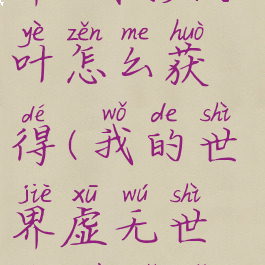 yè zěn me huò
叶怎么获
dé wǒ de shì
得(我的世
jiè xū wú shì
界虚无世